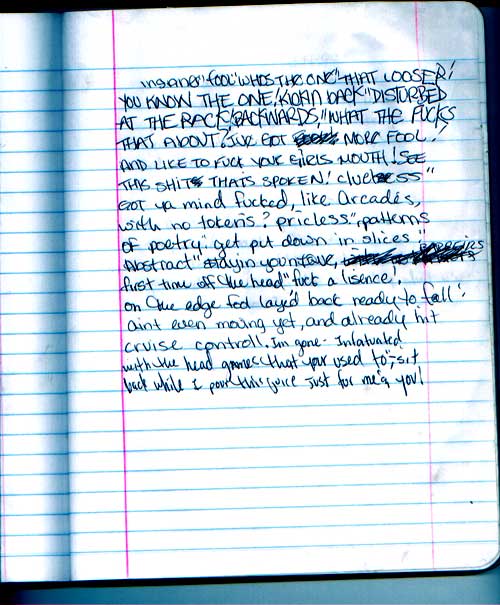 insane" fool" WHOS THE ONE" THAT LOOSER!
YOU KNOW THE ONE! KICKIN back" DISTURBED
AT THE RACK! BACKWARDS," WHAT THE FUCKS
THAT ABOUT! IVE GOT MORE FOOL!
AND LIKE TO FUCK YOUR GIRLS MOUTH! SEE
THIS SHITS THATS SPOKEN! clueless"
GOT ya mind fucked, like Arcades,
with no tokens? pricless", patterns
of poetry! get put down in slices,"
Abstract"
first time off the head" fuck a lisence!
on the edge feet layed back ready to fall!
aint even moving yet, and already hit
cruise controll. Im gone- Infatuated
with the head games that your used to", sit
back while I pour this juice just for me & you!